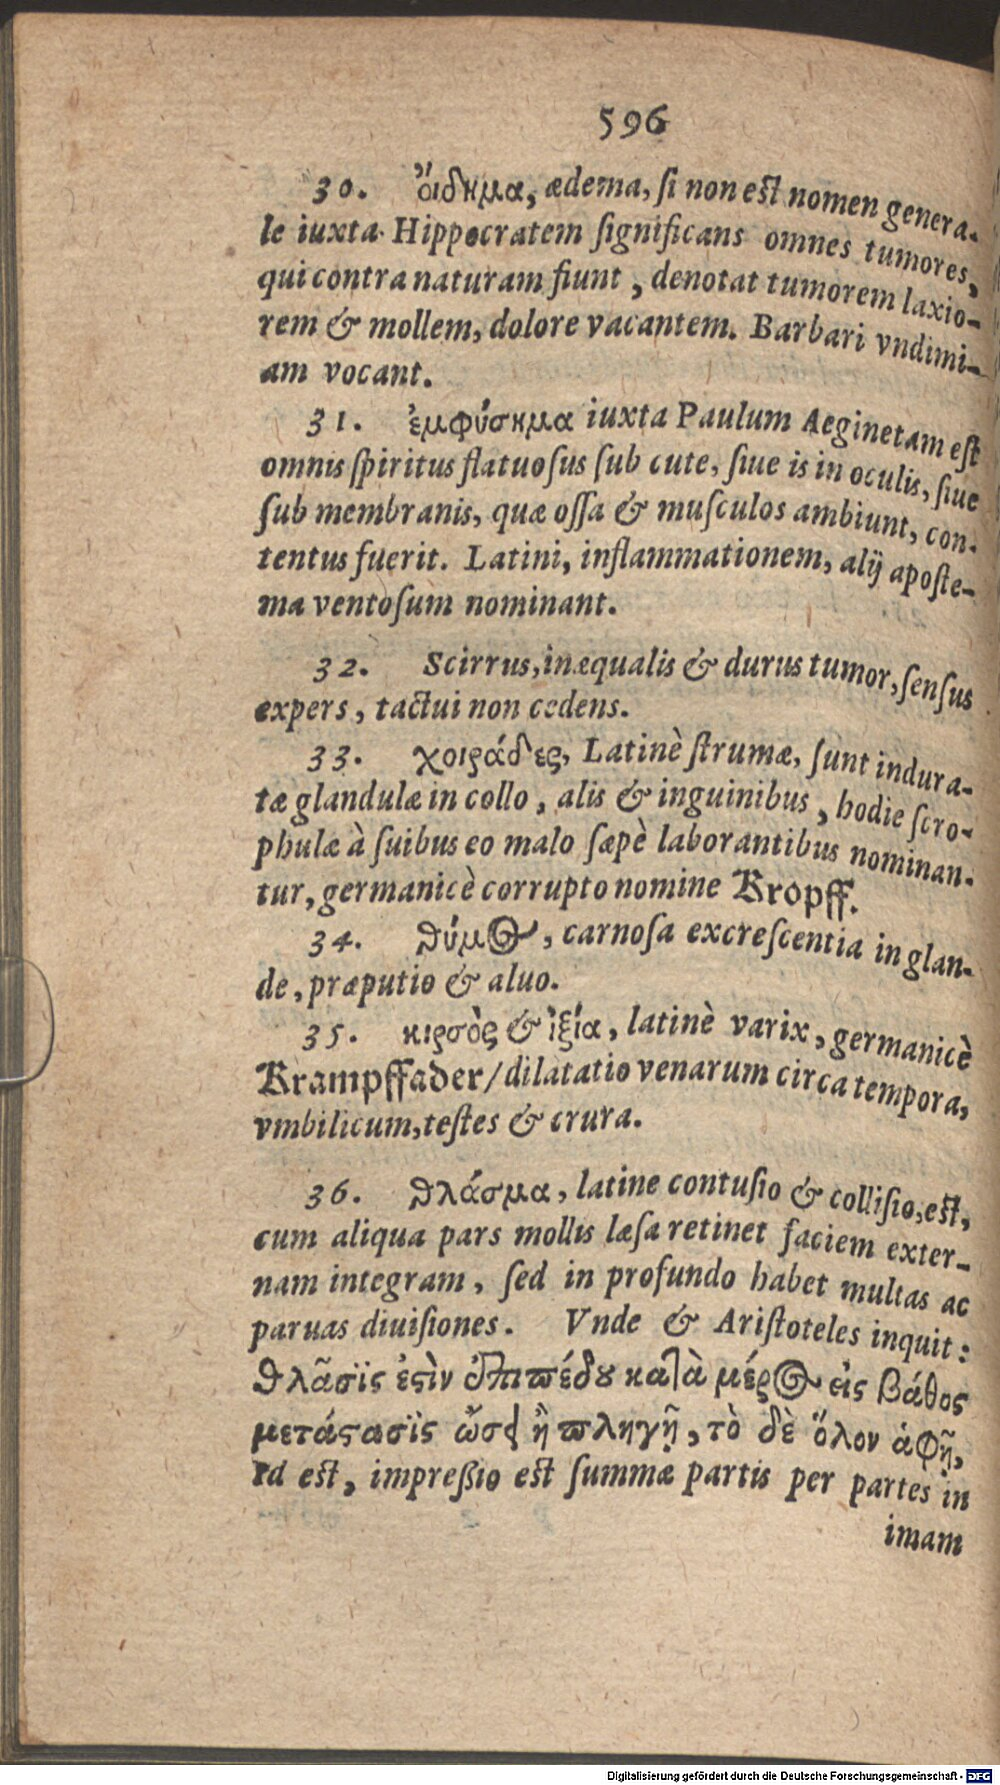 596
30. ὄιδημα, ædema, ſi non eſt nomen genera-
le iuxta Hippocratem ſignificans omnes tumores,
qui contra naturam fiunt, denotat tumorem laxio-
rem & mollem, dolore vacantem. Barbari vndimi-
am vocant.
31. ἐμφύσημα iuxta Paulum Aeginetam eſt
omnis ſpiritus flatuoſus ſub cute, ſiue is in oculis, ſiue
ſub membranis, quæ oſſa & muſculos ambiunt, con-
tentus fuerit. Latini, inflammationem, alij apoſte-
ma ventoſum nominant.
32. Scirrus, inæqualis & durus tumor, ſenſus
expers, tactui non cedens.
33. χοιράδες, Latinè ſtrumæ, ſunt indura-
tæ glandulæ in collo, alis & inguinibus, hodie ſcro-
phulæ à ſuibus eo malo ſæpè laborantibus nominan-
tur, germanicè corrupto nomine Kropff.
34. θύμος, carnoſa excreſcentia in glan-
de, præputio & aluo.
35. κιρσὸς & ἰξία, latinè varix, germanicè
Krampffader/ dilatatio venarum circa tempora,
vmbilicum, teſtes & crura.
36. θλάσμα, latine contuſio & colliſio, eſt,
cum aliqua pars mollis læſa retinet faciem exter-
nam integram, ſed in profundo habet multas ac
paruas diuiſiones. Vnde & Ariſtoteles inquit:
θλᾶσϊς ἐϛὶν ἐπιπέδου καὶὰ μέρος εἰς βάθος
μετάϛασϊς ὦσῳ ἢ πληγῇ, τὸ δὲ ὅλον ἁφῇ,
Id est, impreßio est ſummæ partis per partes in
imam
Digitalisierung gefördert durch die Deutsche Forschungsgemeinschaft - DFG